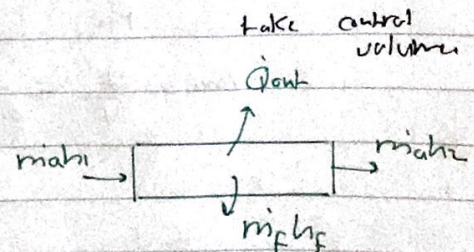 take control
volume
Q̇out
ṁah1
ṁah2
ṁfhf